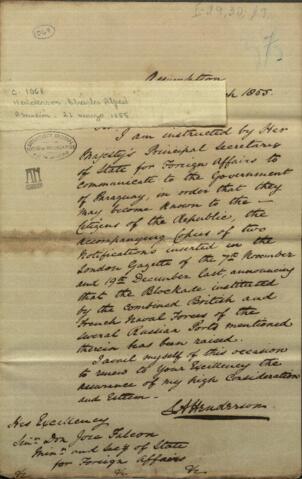 I-29,30,
1068
Assumption
ch 1855.
C. 1068
Henderson, Charles Alfred
Asunción: 21 marzo 1855
Sir
I am instructed by Her
Majesty's Principal Secretary
of State for Foreign Affairs to
communicate to the Government
of Paraguay, in order that they
may become known to the —
Citizens of the Republic, the
accompanying Copies of two
Notifications inserted in the
London Gazette of the 7th November
and 19th December last, announcing
that the Blockade instituted
by the combined British and
French Naval Forces of the
several Russian Ports mentioned
therein has been raised.
I avail myself of this occasion
to renew to Your Excellency the
assurance of my high Consideration
and Esteem.
C A Henderson
His Excellency
Don Jose Falcon
and Secy of State
for Foreign Affairs
&c &c &c